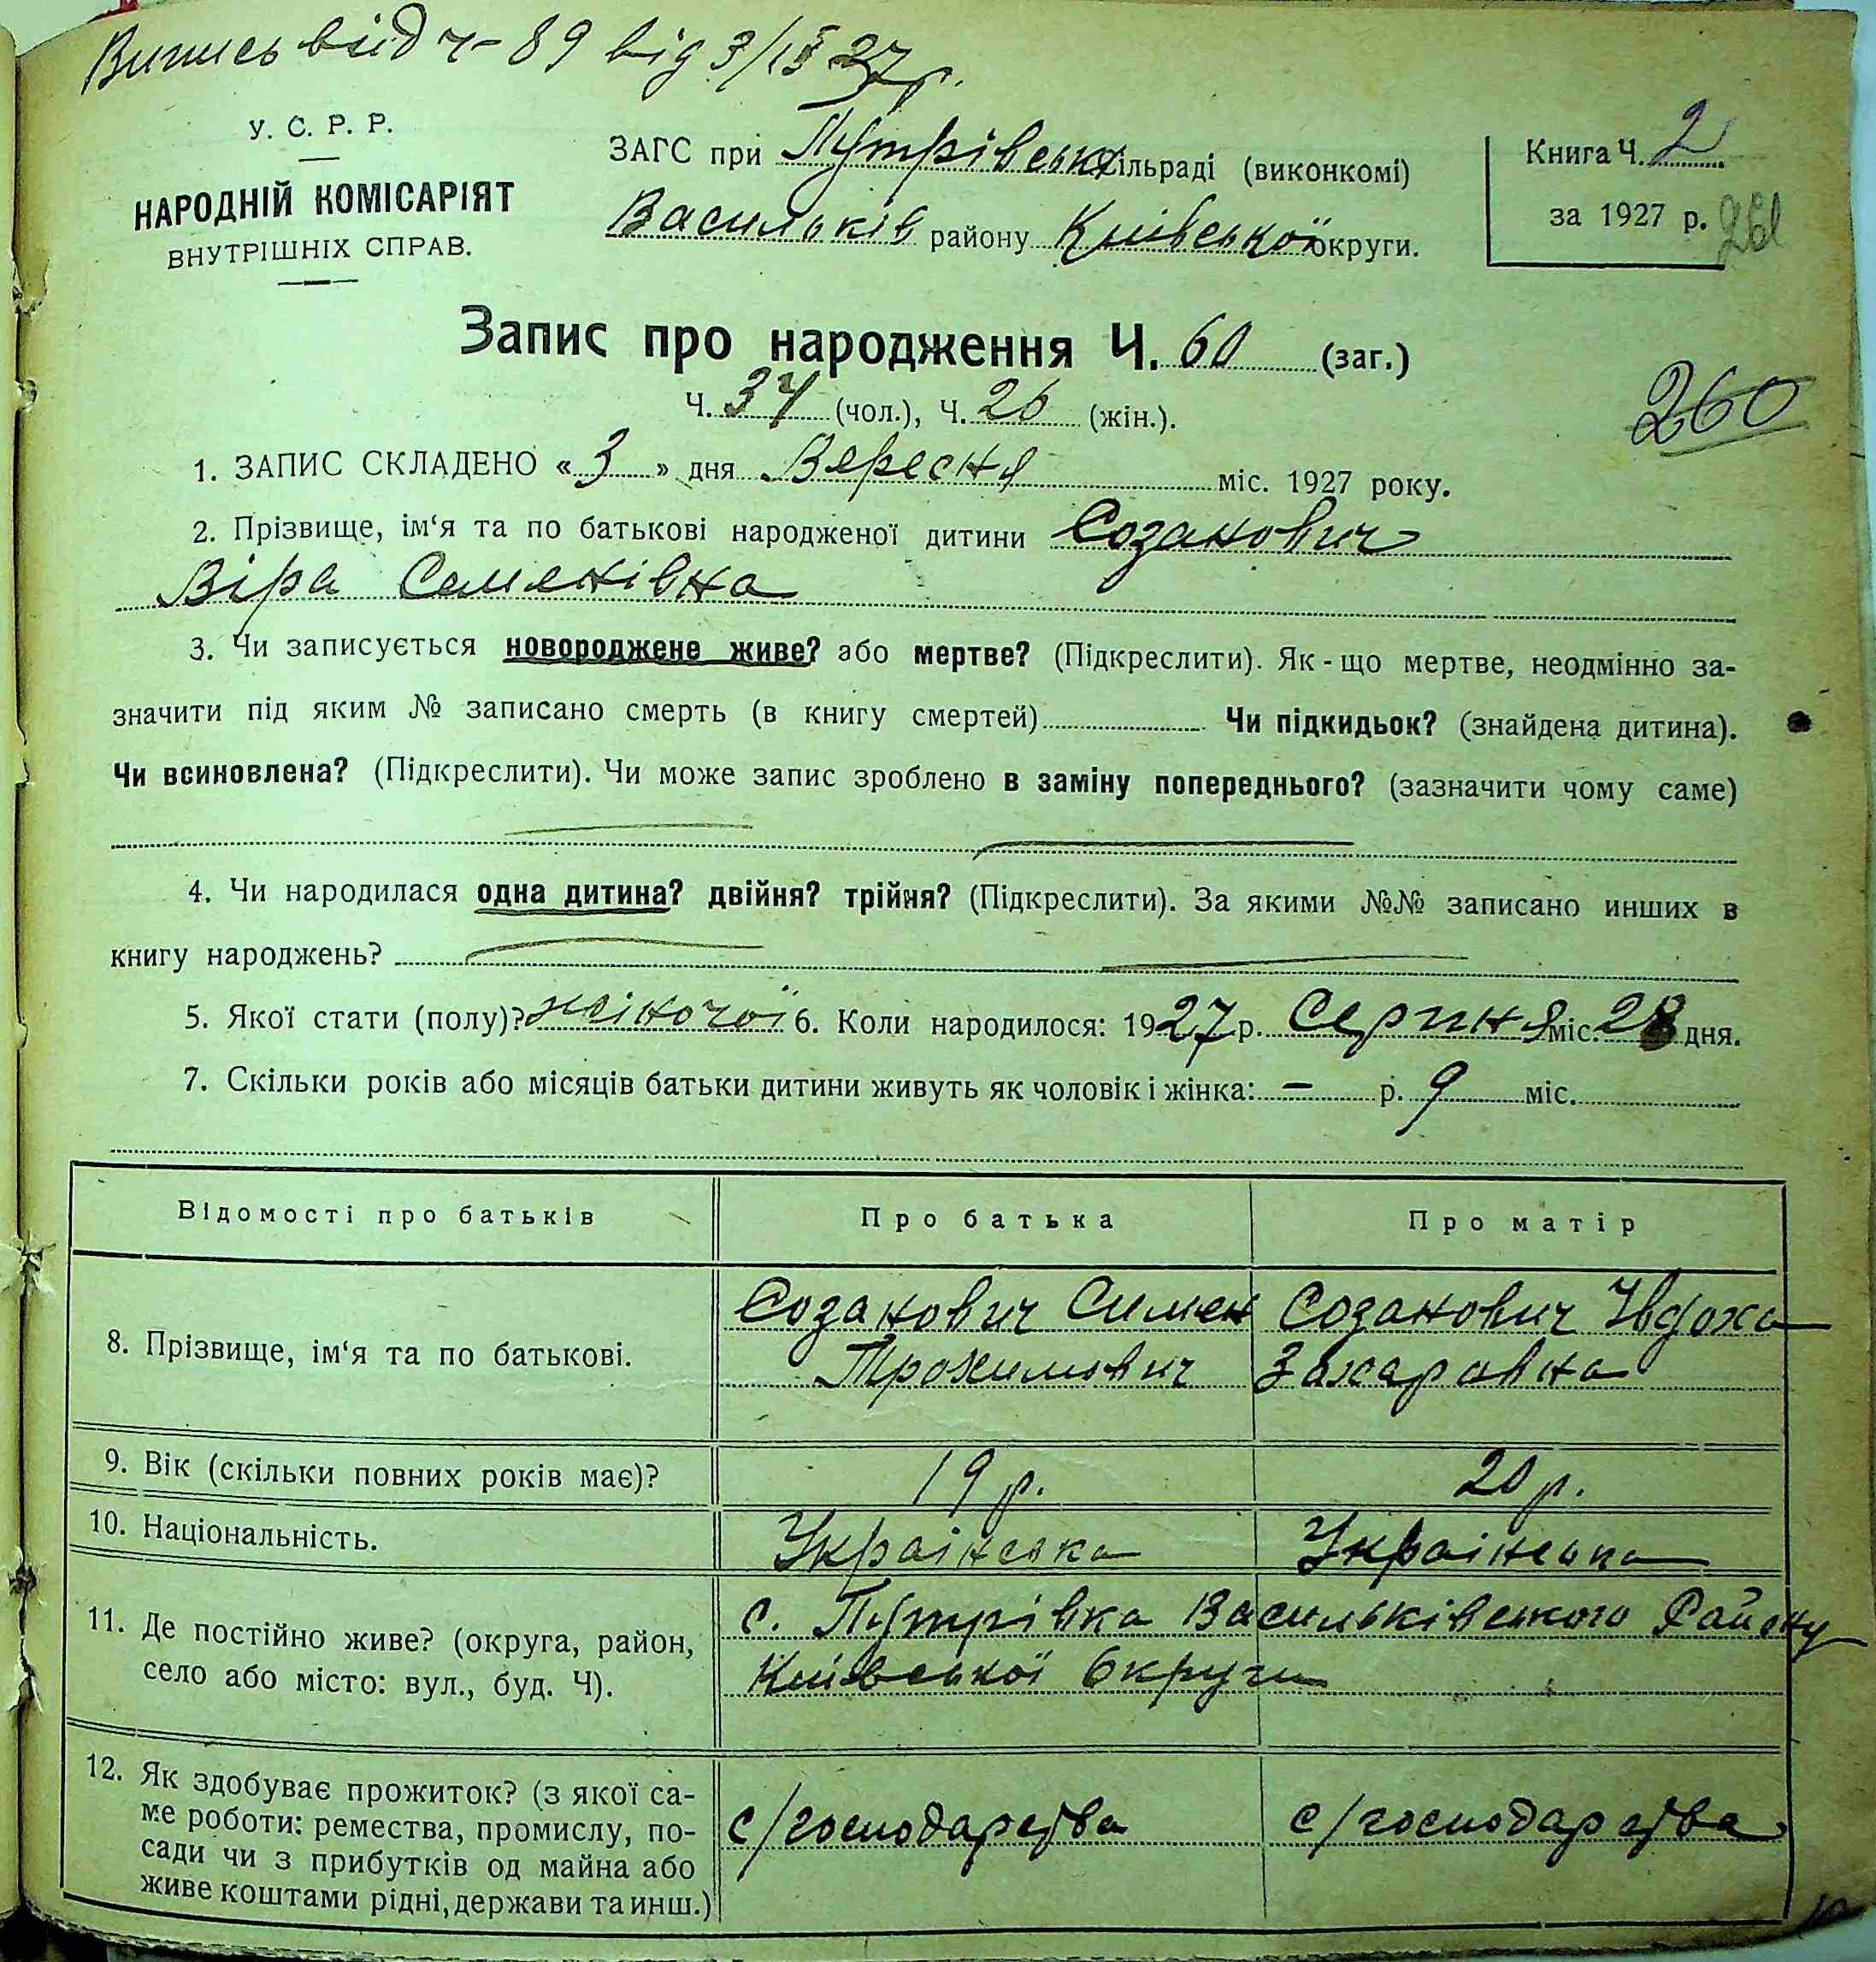 Випись вид ч-89 від 3/IX 27 р.
У. С. Р. Р.
НАРОДНІЙ КОМІСАРІЯТ
ВНУТРІШНІХ СПРАВ.
ЗАГС при Путрівськ сільраді (виконкомі)
Васильків району Київської округи.
Книга Ч. 2
за 1927 р. 261
Запис про народження Ч. 60 (заг.)
Ч. 34 (чол.), Ч. 26 (жін.).
260
1. ЗАПИС СКЛАДЕНО « 3 » дня Вересня міс. 1927 року.
2. Прізвище, ім‘я та по батькові народженої дитини Созанович
Віра Семенівна
3. Чи записується новороджене живе? або мертве? (Підкреслити). Як-що мертве, неодмінно за-
значити під яким № записано смерть (в книгу смертей) Чи підкидьок? (знайдена дитина).
Чи всиновлена? (Підкреслити). Чи може запис зроблено в заміну попереднього? (зазначити чому саме)
4. Чи народилася одна дитина? двійня? трійня? (Підкреслити). За якими №№ записано инших в
книгу народжень?
5. Якої стати (полу)? жіночої 6. Коли народилося: 1927 р. Серпня міс. 28 дня.
7. Скільки років або місяців батьки дитини живуть як чоловік і жінка: — р. 9 міс.
Відомості про батьків Про батька Про матір
8. Прізвище, ім‘я та по батькові.
Созанович Симен Созанович Ївдоха
Трохимович Захаровна
9. Вік (скільки повних років має)? 19 р. 20 р.
10. Національність. Українська Українська
11. Де постійно живе? (округа, район,
село або місто: вул., буд. Ч).
с. Путрівка Васильківського Району
Київської Округи
12. Як здобуває прожиток? (з якої са-
ме роботи: ремества, промислу, по-
сади чи з прибутків од майна або
живе коштами рідні, держави та инш.)
с/господарства с/господарства